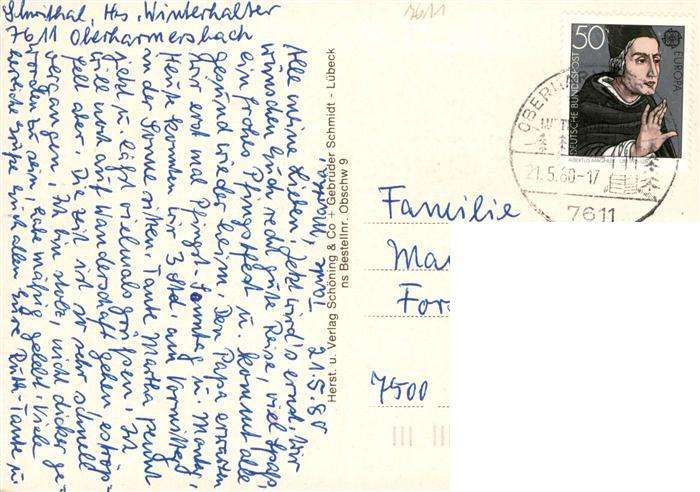 Schnithal, Hrs. Winterhalter
7611 Oberharmersbach
21.5.80
Alle meine Lieben, jetzt wird's ernst. Wir
wünschen Euch recht gute Reise, viel Spaß,
ein frohes Pfingstfest u. kommt alle
gesund wieder heim. Den Papa erwarten
wir erst mal Pfingst-Sonntag u. Montag.
Heute konnten wir 3 Std. am Vormittag
in der Sonne sitzen. Tante Martha pennt
jetzt u. läßt vielmals grüßen. Ich
will noch auf Wanderschaft gehen
aber. Die Zeit ist so sehr schnell
vergangen. Ich bin stolz, nicht dicker ge-
worden zu sein, habe mäßig gelebt. Viele
herzliche Grüße Euch allen Eure Ruth-Tante u.
Tante Martha.
Herst. u. Verlag Schöning & Co + Gebrüder Schmidt - Lübeck
ns Bestellnr. Obschw 9
7611
50
DEUTSCHE BUNDESPOST
EUROPA
CEPT
OBERHA
21.5.80-17
7611
Familie
Ma
For
7500